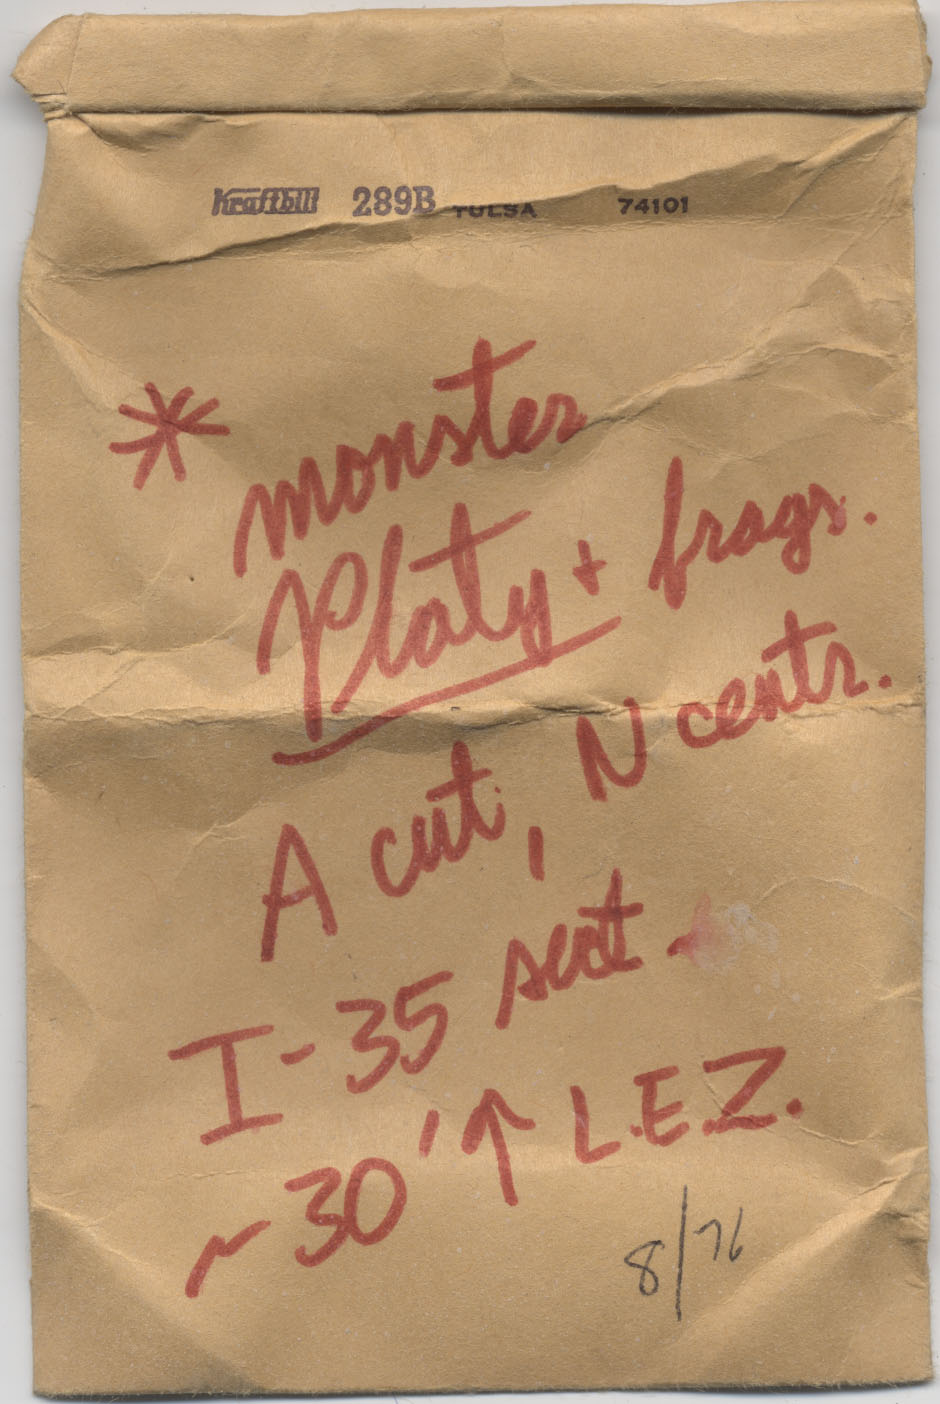 Kraftbilt 289B TULSA 74101
* monster
Platy + frags.
A cut, N centr.
I-35 sect.
~30' ↑ L.E.Z.
8/76